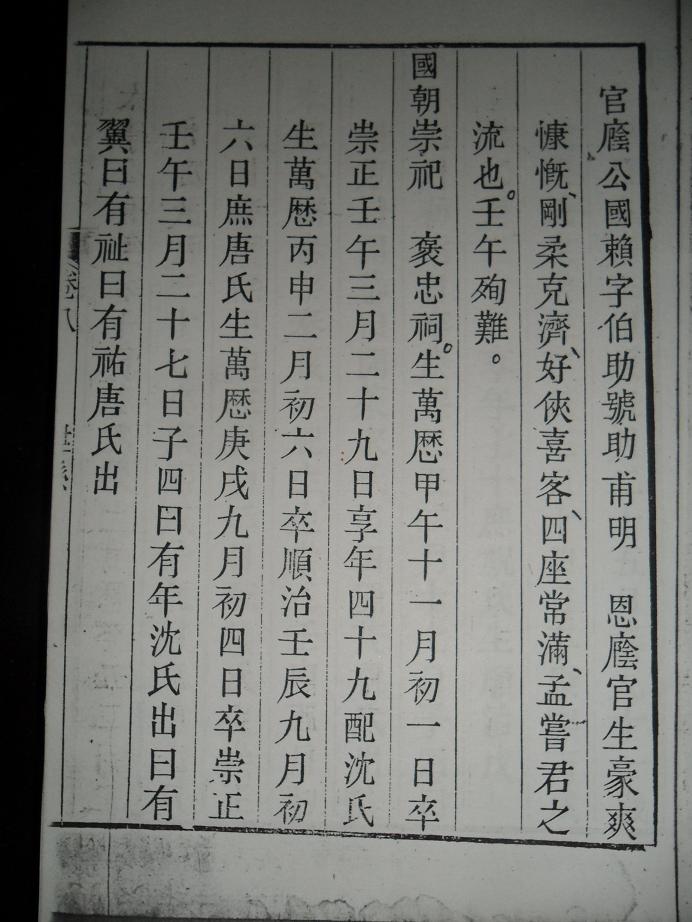 官廕公國賴字伯助號助甫明　恩廕官生豪爽
慷慨、剛柔克濟、好俠喜客、四座常滿、孟嘗君之
流也。壬午殉難。
國朝崇祀　褒忠祠。生萬曆甲午十一月初一日卒
崇正壬午三月二十九日享年四十九配沈氏
生萬曆丙申二月初六日卒順治壬辰九月初
六日庶唐氏生萬曆庚戌九月初四日卒崇正
壬午三月二十七日子四曰有年沈氏出曰有
翼曰有祉曰有祐唐氏出
卷八